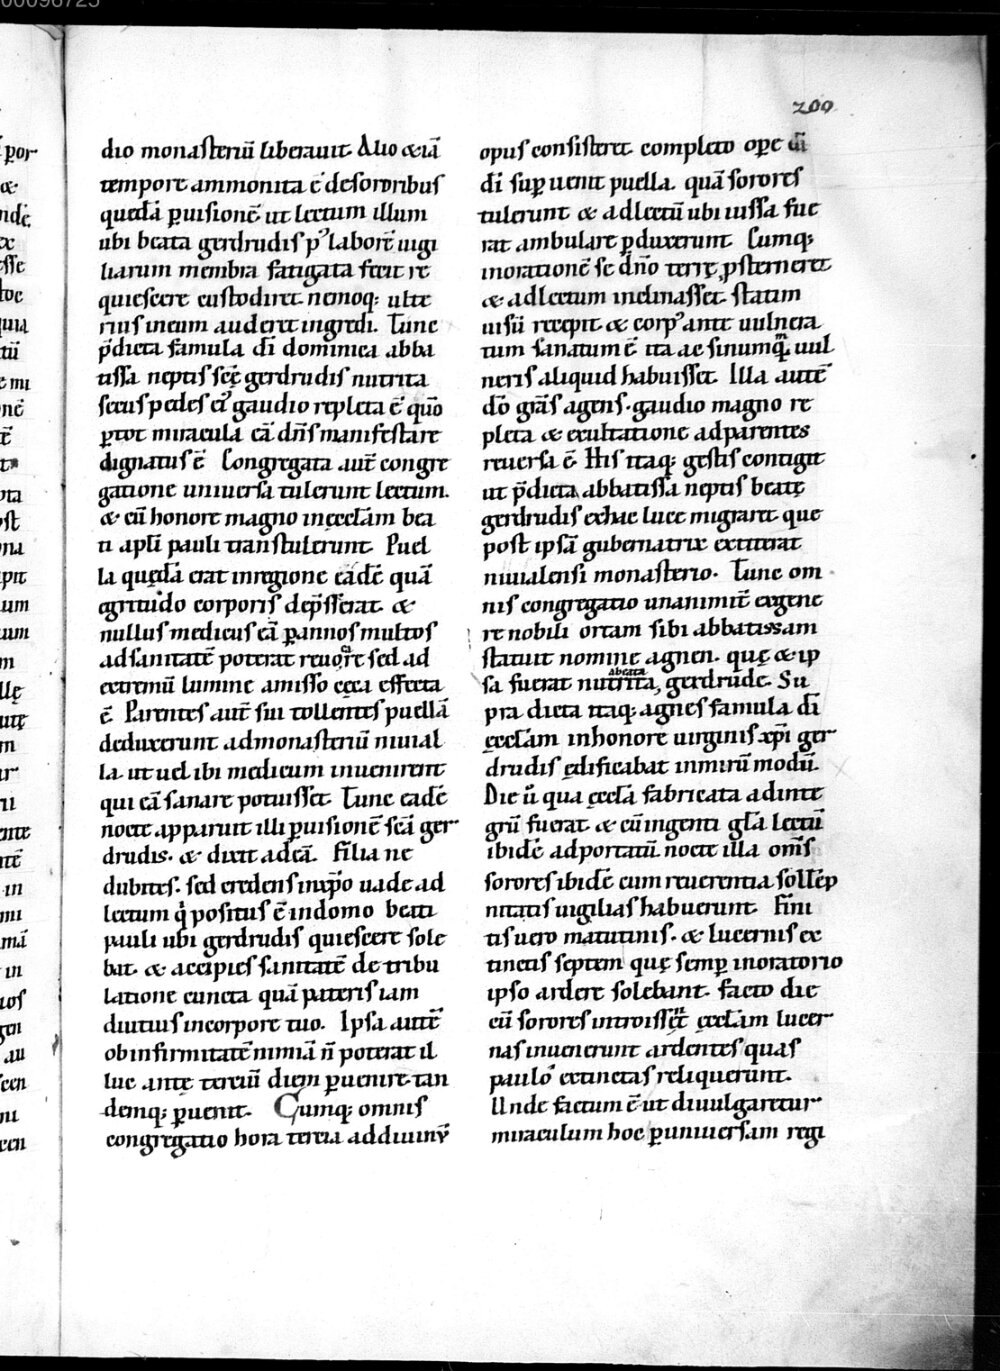 200
dio monasteriū liberauit. Alio &iā
tempore ammonita ē desororibus
quedā ꝑuisionē ut lectum illum
ubi beata gerdrudis pꝰ laborē uigi
liarum membra fatigata fecit re
quiescere custodiret nemoq; ulte
rius ineum auderet ingredi. Tunc
p̄dicta famula dī dominica abba
tissa neptis scę̄ gerdrudis nutrita
secus pedes eiꝰ gaudio repleta ē quō
ꝑtot miracula eā dn̄s manifestare
dignatus ē Congregata aut̄ congre
gatione uniuersa tulerunt lectum.
& cū honore magno inęccłam bea
ti aplī pauli transtulerunt. Puel
la quędā erat inregione eadē quā
egritudo corporis dep̄sserat. &
nullus medicus eā ꝑannos multos
adsanitatē poterat reuocare sed ad
extremū lumine amisso cęca effecta
ē. Parentes aut̄ sui tollentes puellā
deduxerunt admonasteriū niuial
la. ut uel ibi medicum inuenirent
qui eā sanare potuisset. Tunc eadē
nocte apparuit illi ꝑuisionē scā ger
drudis. & dixit adeā. Filia ne
dubites. sed credens inxp̄o uade ad
lectum q̄ positus ē indomo beati
pauli ubi gerdrudis quiescere sole
bat. & accipies sanitatē de tribu
latione cuncta quā pateris iam
diutius incorpore tuo. Ipsa autē
obinfirmitatē nimiā n̄ poterat il
luc ante terciū diem ꝑuenire. tan
demq; ꝑuenit. Cumq; omnis
congregatio hora tercia addiuinū
opus consisteret completo oꝑe
dī suꝑuenit puella. quā sorores
tulerunt & adlectū ubi iussa fue
rat ambulare ꝑduxerunt. Cumq;
inorationē se dn̄o terrę ꝓsterneret
& adlectum inclinasset. statim
uisū recepit. & corpꝰ ante uulnera
tum sanatum ē ita ac sinumq̄m uul
neris aliquid habuisset. Illa autē
dō grās agens. gaudio magno re
pleta & exultatione adparentes
reuersa ē. His itaq; gestis contigit
ut p̄dicta abbatissa neptis beatę
gerdrudis exhac luce migraret que
post ipsā gubernatrix extiterat
niuialensi monasterio. Tunc om
nis congregatio unanimit̄ exgene
re nobili ortam sibi abbatissam
statuit nomine agnen. quę & ip
sa fuerat nutrita, abeata gerdrude. Su
pra dicta itaq; agnes famula dī
ęccłam inhonore uirginis xp̄i ger
drudis ędificabat inmirū modū.
Die ū qua ęccła fabricata adinte
grū fuerat. & cū ingenti gła lectū
ibidē adportatū. nocte illa om̄s
sorores ibidē cum reuerentia sollēp
nitatis uigilias habuerunt. Fini
tis uero matutinis. & lucernis ex
tinctis septem quę semꝑ inoratorio
ipso ardere solebant. facto die
cū sorores introissent ęccłam lucer
nas inuenerunt ardentes quas
pauloꝰ extinctas reliquerunt.
Unde factum ē ut diuulgaretur
miraculum hoc ꝑuniuersam regi